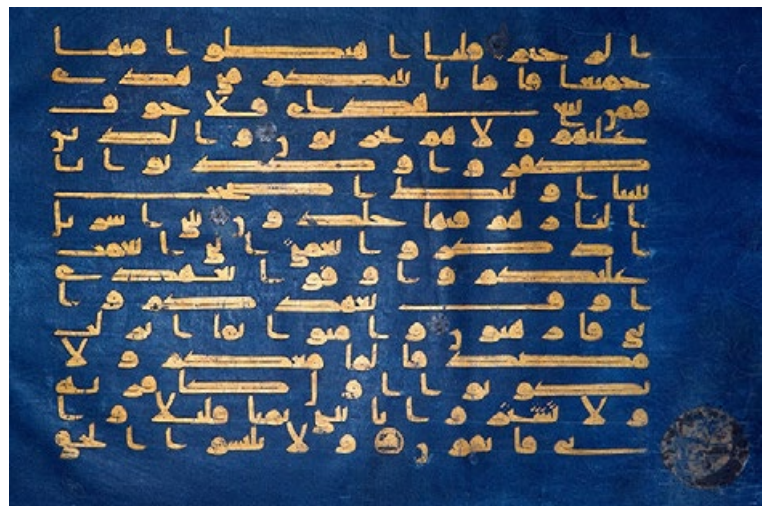 الرحيم قلنا اهبطوا منها
جميعا فاما ياتينكم مني هدى
فمن تبع هداي فلا خوف
عليهم ولا هم يحزنون والذين
كفروا وكذبوا بايـ
تنا اولئك اصحب
النار هم فيها خلدون يبني اسريل
اذكروا نعمتي التي انعمت
عليكم واوفوا بعهدي
اوف بعهدكم وا
يي فارهبون وامنوا بما انزلت
مصدقا لما معكم ولا
تكونوا اول كافر به
ولا تشتروا بايتي ثمنا قليلا وا
يي فاتقون ولا تلبسوا الحق